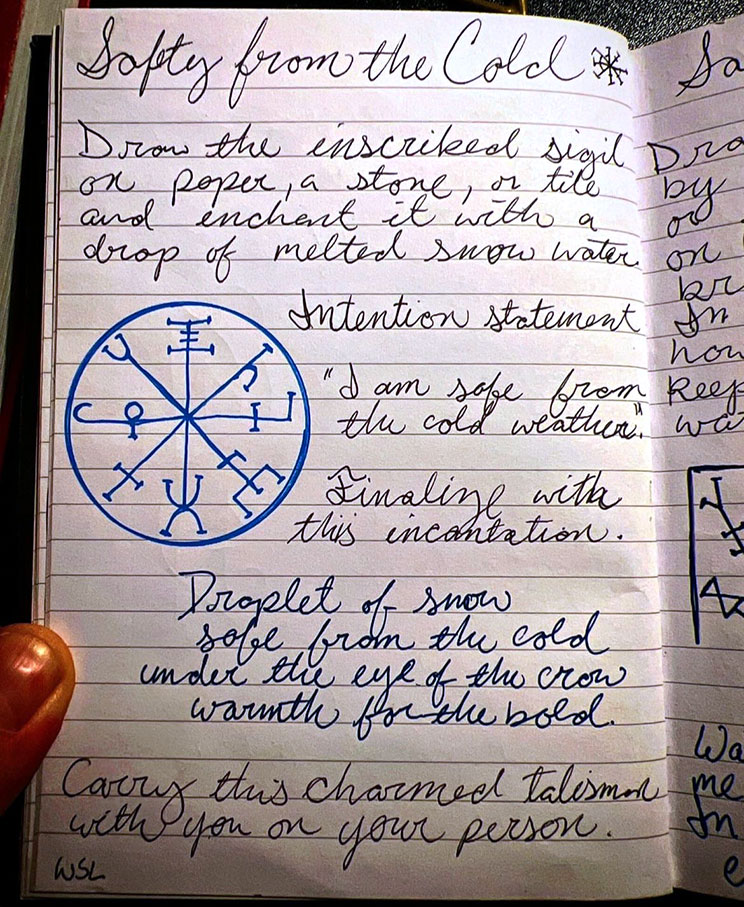 Safty from the Cold
Draw the inscribed sigil
on paper, a stone, or tile
and enchant it with a
drop of melted snow water.
Intention statement
"I am safe from
the cold weather".
Finalize with
this incantation.
Droplet of snow
safe from the cold
under the eye of the crow
warmth for the bold.
Carry this charmed talisman
with you on your person.
WSL
Sa
Dra
by
or
on
br
In
how
keep
wa
Wa
me
In
e